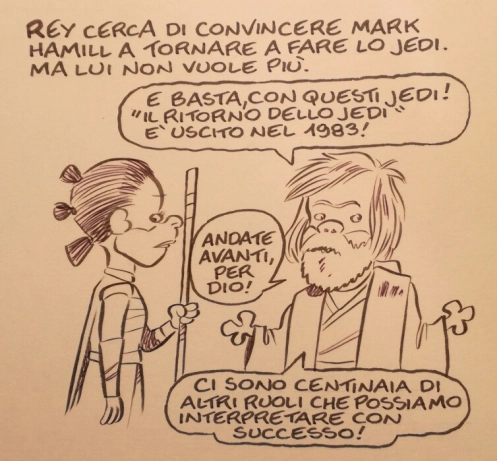 REY CERCA DI CONVINCERE MARK
HAMILL A TORNARE A FARE LO JEDI.
MA LUI NON VUOLE PIÙ.
E BASTA, CON QUESTI JEDI!
"IL RITORNO DELLO JEDI"
E' USCITO NEL 1983!
ANDATE
AVANTI,
PER
DIO!
CI SONO CENTINAIA DI
ALTRI RUOLI CHE POSSIAMO
INTERPRETARE CON
SUCCESSO!